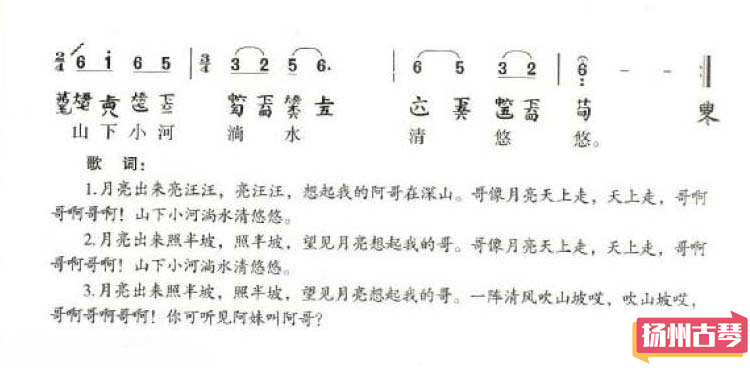 2/4 6 i 6 5 3/4 3 2 5 6. 6 5 3 2 6 - -
山下小河 淌 水 清 悠 悠。
歌 词：
1.月亮出来亮汪汪，亮汪汪，想起我的阿哥在深山。哥像月亮天上走，天上走，哥啊
哥啊哥啊！山下小河淌水清悠悠。
2.月亮出来照半坡，照半坡，望见月亮想起我的哥。哥像月亮天上走，天上走，哥啊
哥啊哥啊！山下小河淌水清悠悠。
3.月亮出来照半坡，照半坡，望见月亮想起我的哥。一阵清风吹山坡哎，吹山坡哎，
哥啊哥啊哥啊！你可听见阿妹叫阿哥？
扬州古琴